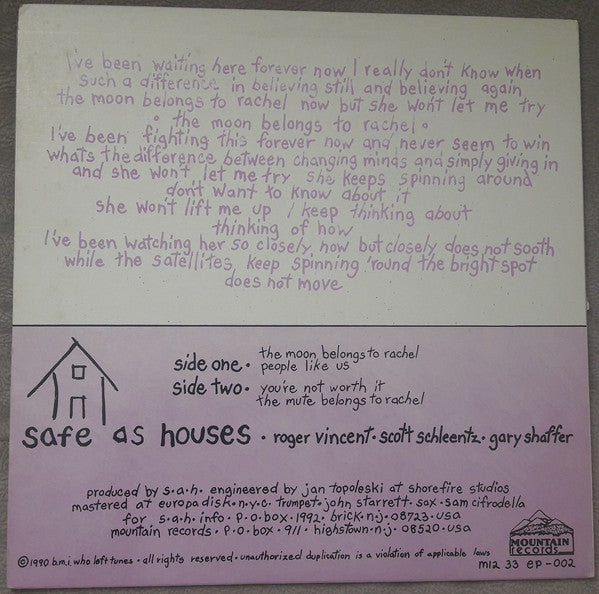 I've been waiting here forever now I really don't know when
such a difference in believing still and believing again
the moon belongs to rachel now but she won't let me try
• the moon belongs to rachel •
I've been fighting this forever now and never seem to win
whats the difference between changing minds and simply giving in
and she won't let me try she keeps spinning around
don't want to know about it
she won't lift me up i keep thinking about
thinking of how
I've been watching her so closely now but closely does not sooth
while the satellites keep spinning 'round the bright spot
does not move
side one • the moon belongs to rachel
people like us
side two • you're not worth it
the mute belongs to rachel
safe as houses • roger vincent • scott schleentz • gary shaffer
produced by s•a•h• engineered by jan topoleski at shorefire studios
mastered at europadisk•n•y•c• trumpet•john starrett•sax•sam cifrodella
for s•a•h• info• p•o•box•1992• brick•n•j• 08723•usa
mountain records• p•o•box• 911• highstown•n•j• 08520•usa
MOUNTAIN
records
©1990 b.m.i. who left tunes • all rights reserved • unauthorized duplication is a violation of applicable laws
M12 33 EP-002